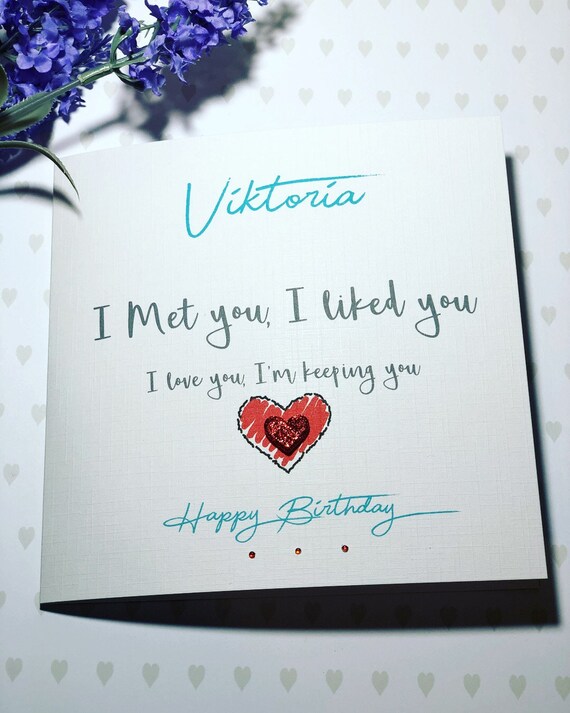 Viktoria
I Met you, I liked you
I love you, I'm keeping you
Happy Birthday